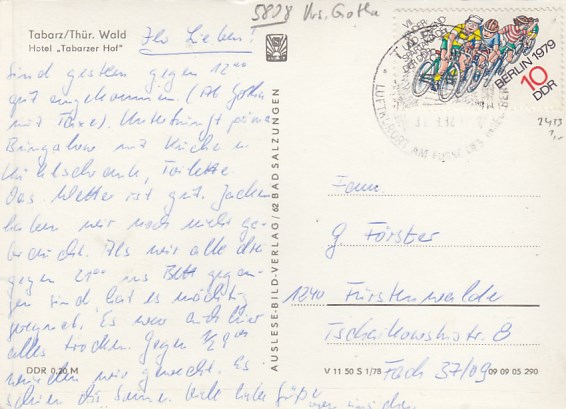 5808 Krs. Gotha
Tabarz/Thür. Wald
Hotel „Tabarzer Hof"
Ihr Lieben!
Sind gestern gegen 12⁰⁰
gut angekommen. (Ab Gotha
mit Taxe). Unterkunft prima
Bungalow mit Küche u.
Kühlschrank, Toilette.
Das Wetter ist gut. Jacken
haben wir noch nicht ge-
braucht. Als wir alle drei
gegen 21⁰⁰ ins Bett gegan-
gen sind hat es mächtig
geregnet. Es war auch hier
alles trocken. Gegen ½9⁰⁰
wurden wir geweckt. Es
schien die Sonne. Viele liebe Grüße
DDR 0,20 M
AUSLESE-BILD-VERLAG / 62 BAD SALZUNGEN
BERLIN 1979
10
DDR
LUFTKURORT AM FUSSE DES
2433
1,-
Fam.
G. Förster
1240 Fürstenwalde
Tschaikowskistr. 8
Fach 37/09
V 11 50 S 1/78
09 09 05 290